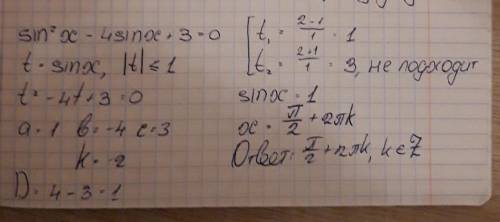 sin²x - 4sinx + 3 = 0
t = sinx, |t| ≤ 1
t² - 4t + 3 = 0
a = 1 b = -4 c = 3
k = -2
D = 4 - 3 = 1
[ t₁ = (2-1)/1 = 1
t₂ = (2+1)/1 = 3, не подходит
sinx = 1
x = π/2 + 2πk
Ответ: π/2 + 2πk, k ∈ Z